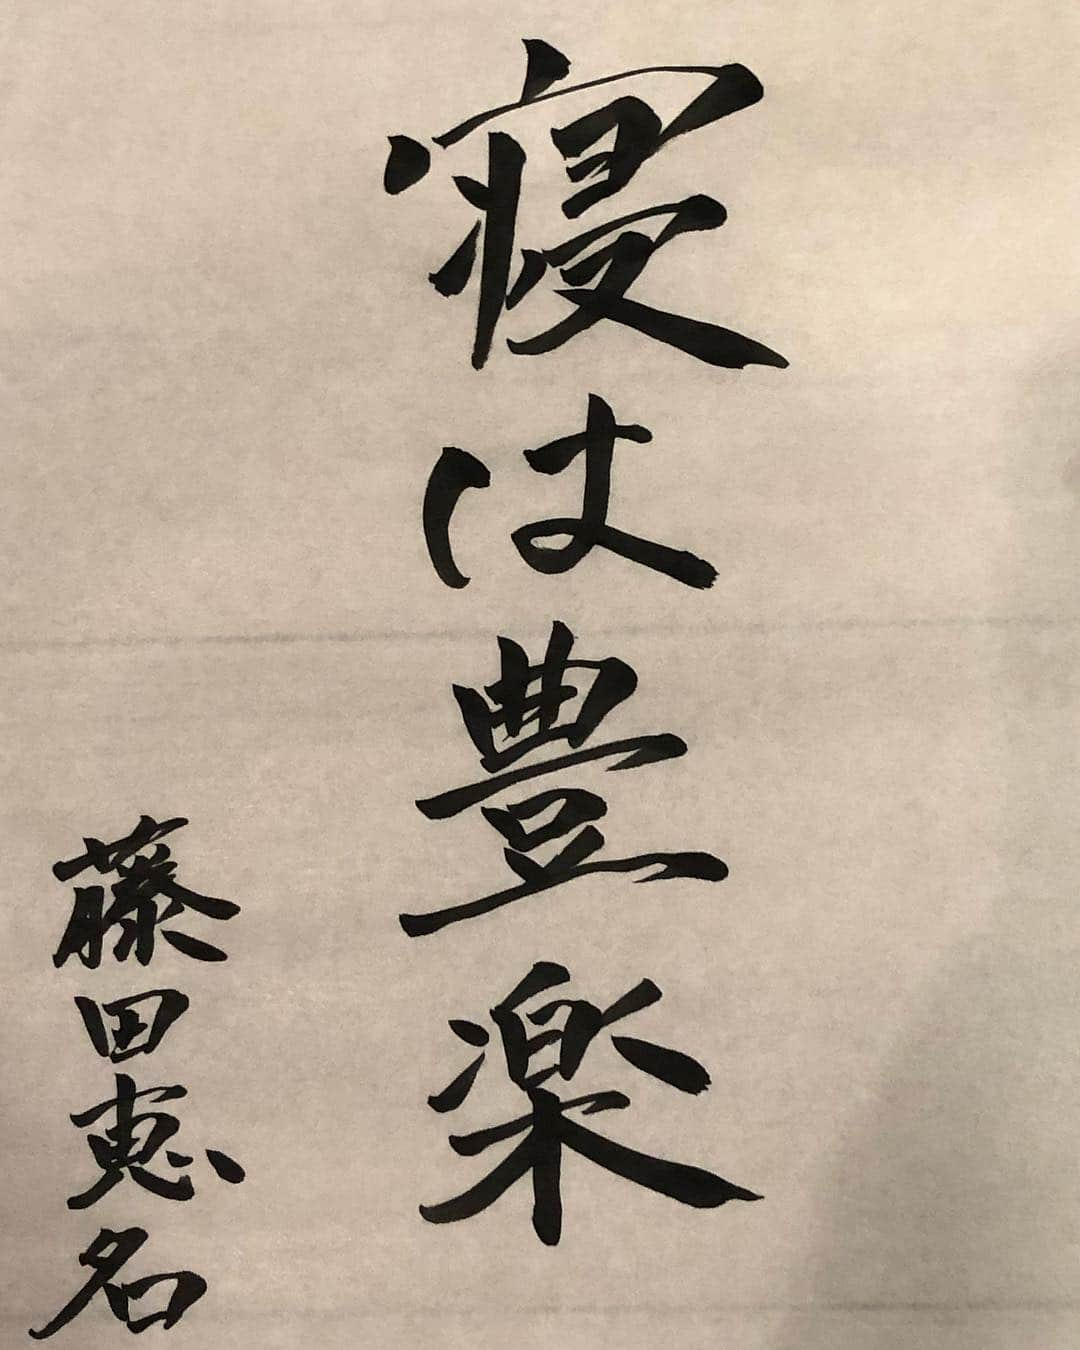 寝は豊楽
藤田恵名